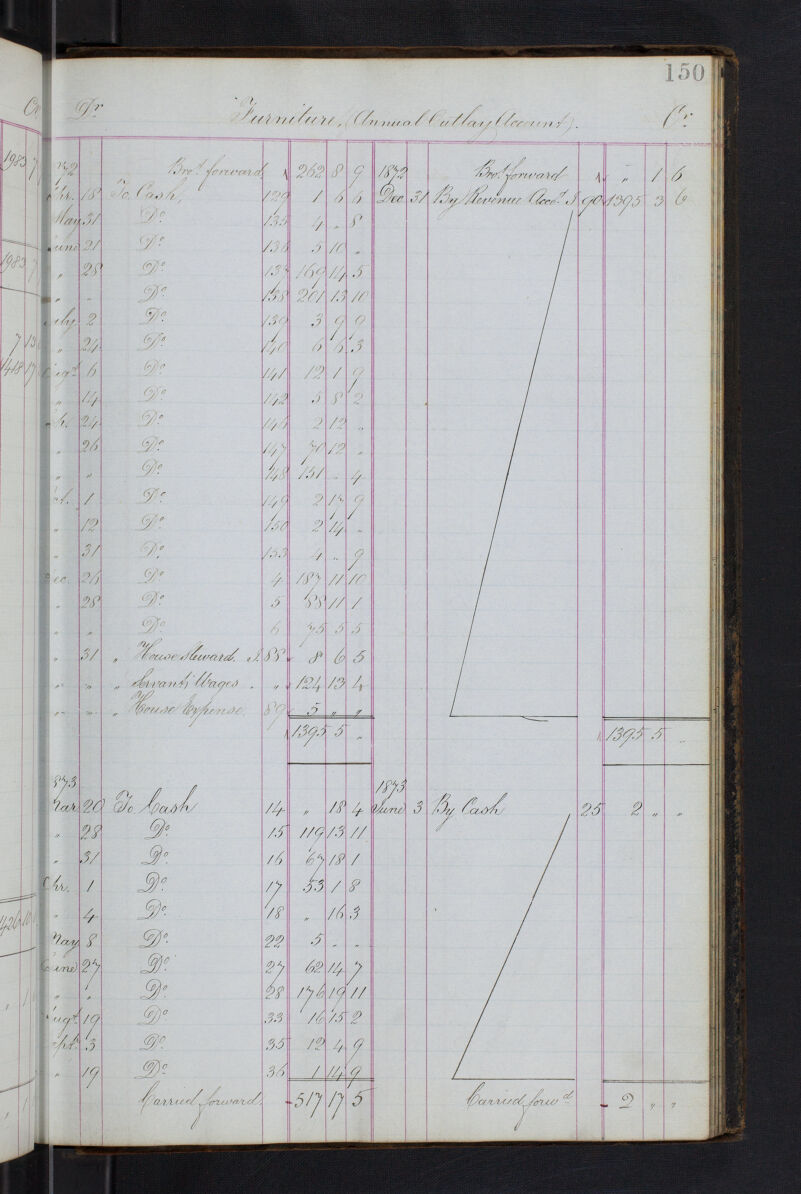 150
Dr. Furniture, (Annual Outlay Account). Cr.
72 Brot. forward 262 8 9 1872 Brot. forward " 1 6
18 To Cash, 129 1 6 6 Dec 31 By Revenue Acct. J. 90 1395 3 6
May 31 Do. 135 4 " 8
une 21 Do. 136 5 10 "
" 28 Do. 137 169 14 5
" " Do. 138 201 13 10
uly 2 Do. 139 3 9 9
" 24 Do. 140 6 6 3
ugt. 6 Do. 141 12 1 9
" 14 Do. 142 5 8 2
24 Do. 146 2 12 "
" 26 Do. 147 70 12 "
" " Do. 148 151 " 4
ct. 1 Do. 149 2 17 9
" 12 Do. 150 2 14 "
" 31 Do. 153 4 " 9
ec. 26 Do. 4 187 11 10
" 28 Do. 5 88 11 1
" " Do. 6 75 5 5
" 31 " House Steward. J. 88 8 6 5
" " " Servants Wages " " 124 13 4
" " " House Expense 89 5 " "
1395 5 " 1395 5 "
873 1873
Mar 20 To Cash 14 " 18 4 June 3 By Cash 25 2 " "
" 28 Do. 15 119 13 11
" 31 Do. 16 67 18 1
pr. 1 Do. 17 53 1 8
" 4 Do. 18 " 16 3
May 8 Do. 22 5 " "
une 27 Do. 27 62 14 7
" " Do. 28 176 19 11
ugt. 19 Do. 33 16 15 2
ept. 3 Do. 35 12 4 9
" 19 Do. 36 1 14 9
Carried forward 517 17 5 Carried forwd. 2 " "